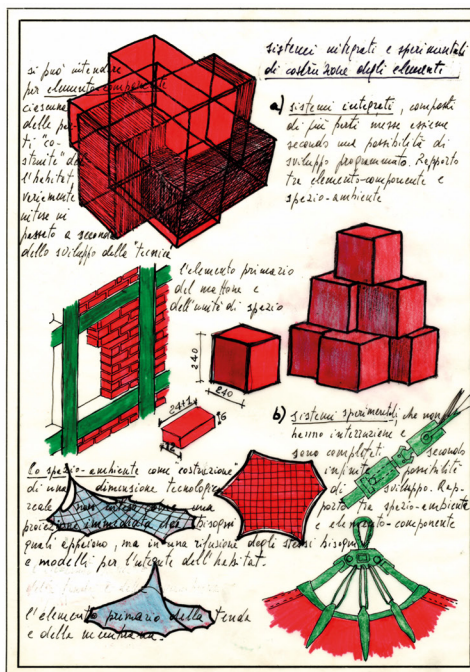 sistemi integrati e sperimentali
di costruzione degli elementi
si può intendere
per elemento-componente
ciascuna
delle par-
ti "co-
struite" del
l'habitat
variamente
intese in
passato a seconda
dello sviluppo della "tecnica"
a) sistemi integrati, composti
di più parti messe assieme
secondo una possibilità di
sviluppo programmato. Rapporto
tra elemento-componente e
spazio-ambiente
l'elemento primario
del mattone e
dell'unità di spazio
240
240
24+1
6
12
b) sistemi sperimentali, che non
hanno interruzione e
sono completati secondo
infinite possibilità
di sviluppo. Rap-
porto tra spazio-ambiente
e elemento-componente
lo spazio-ambiente come "costruzione"
di una dimensione tecnologica
reale, non intesa come una
proiezione immediata dei bisogni
quali appaiono, ma in una rifusione degli stessi bisogni
e modelli per l'integrità dell'habitat.
l'elemento primario della tenda
e della membrana.